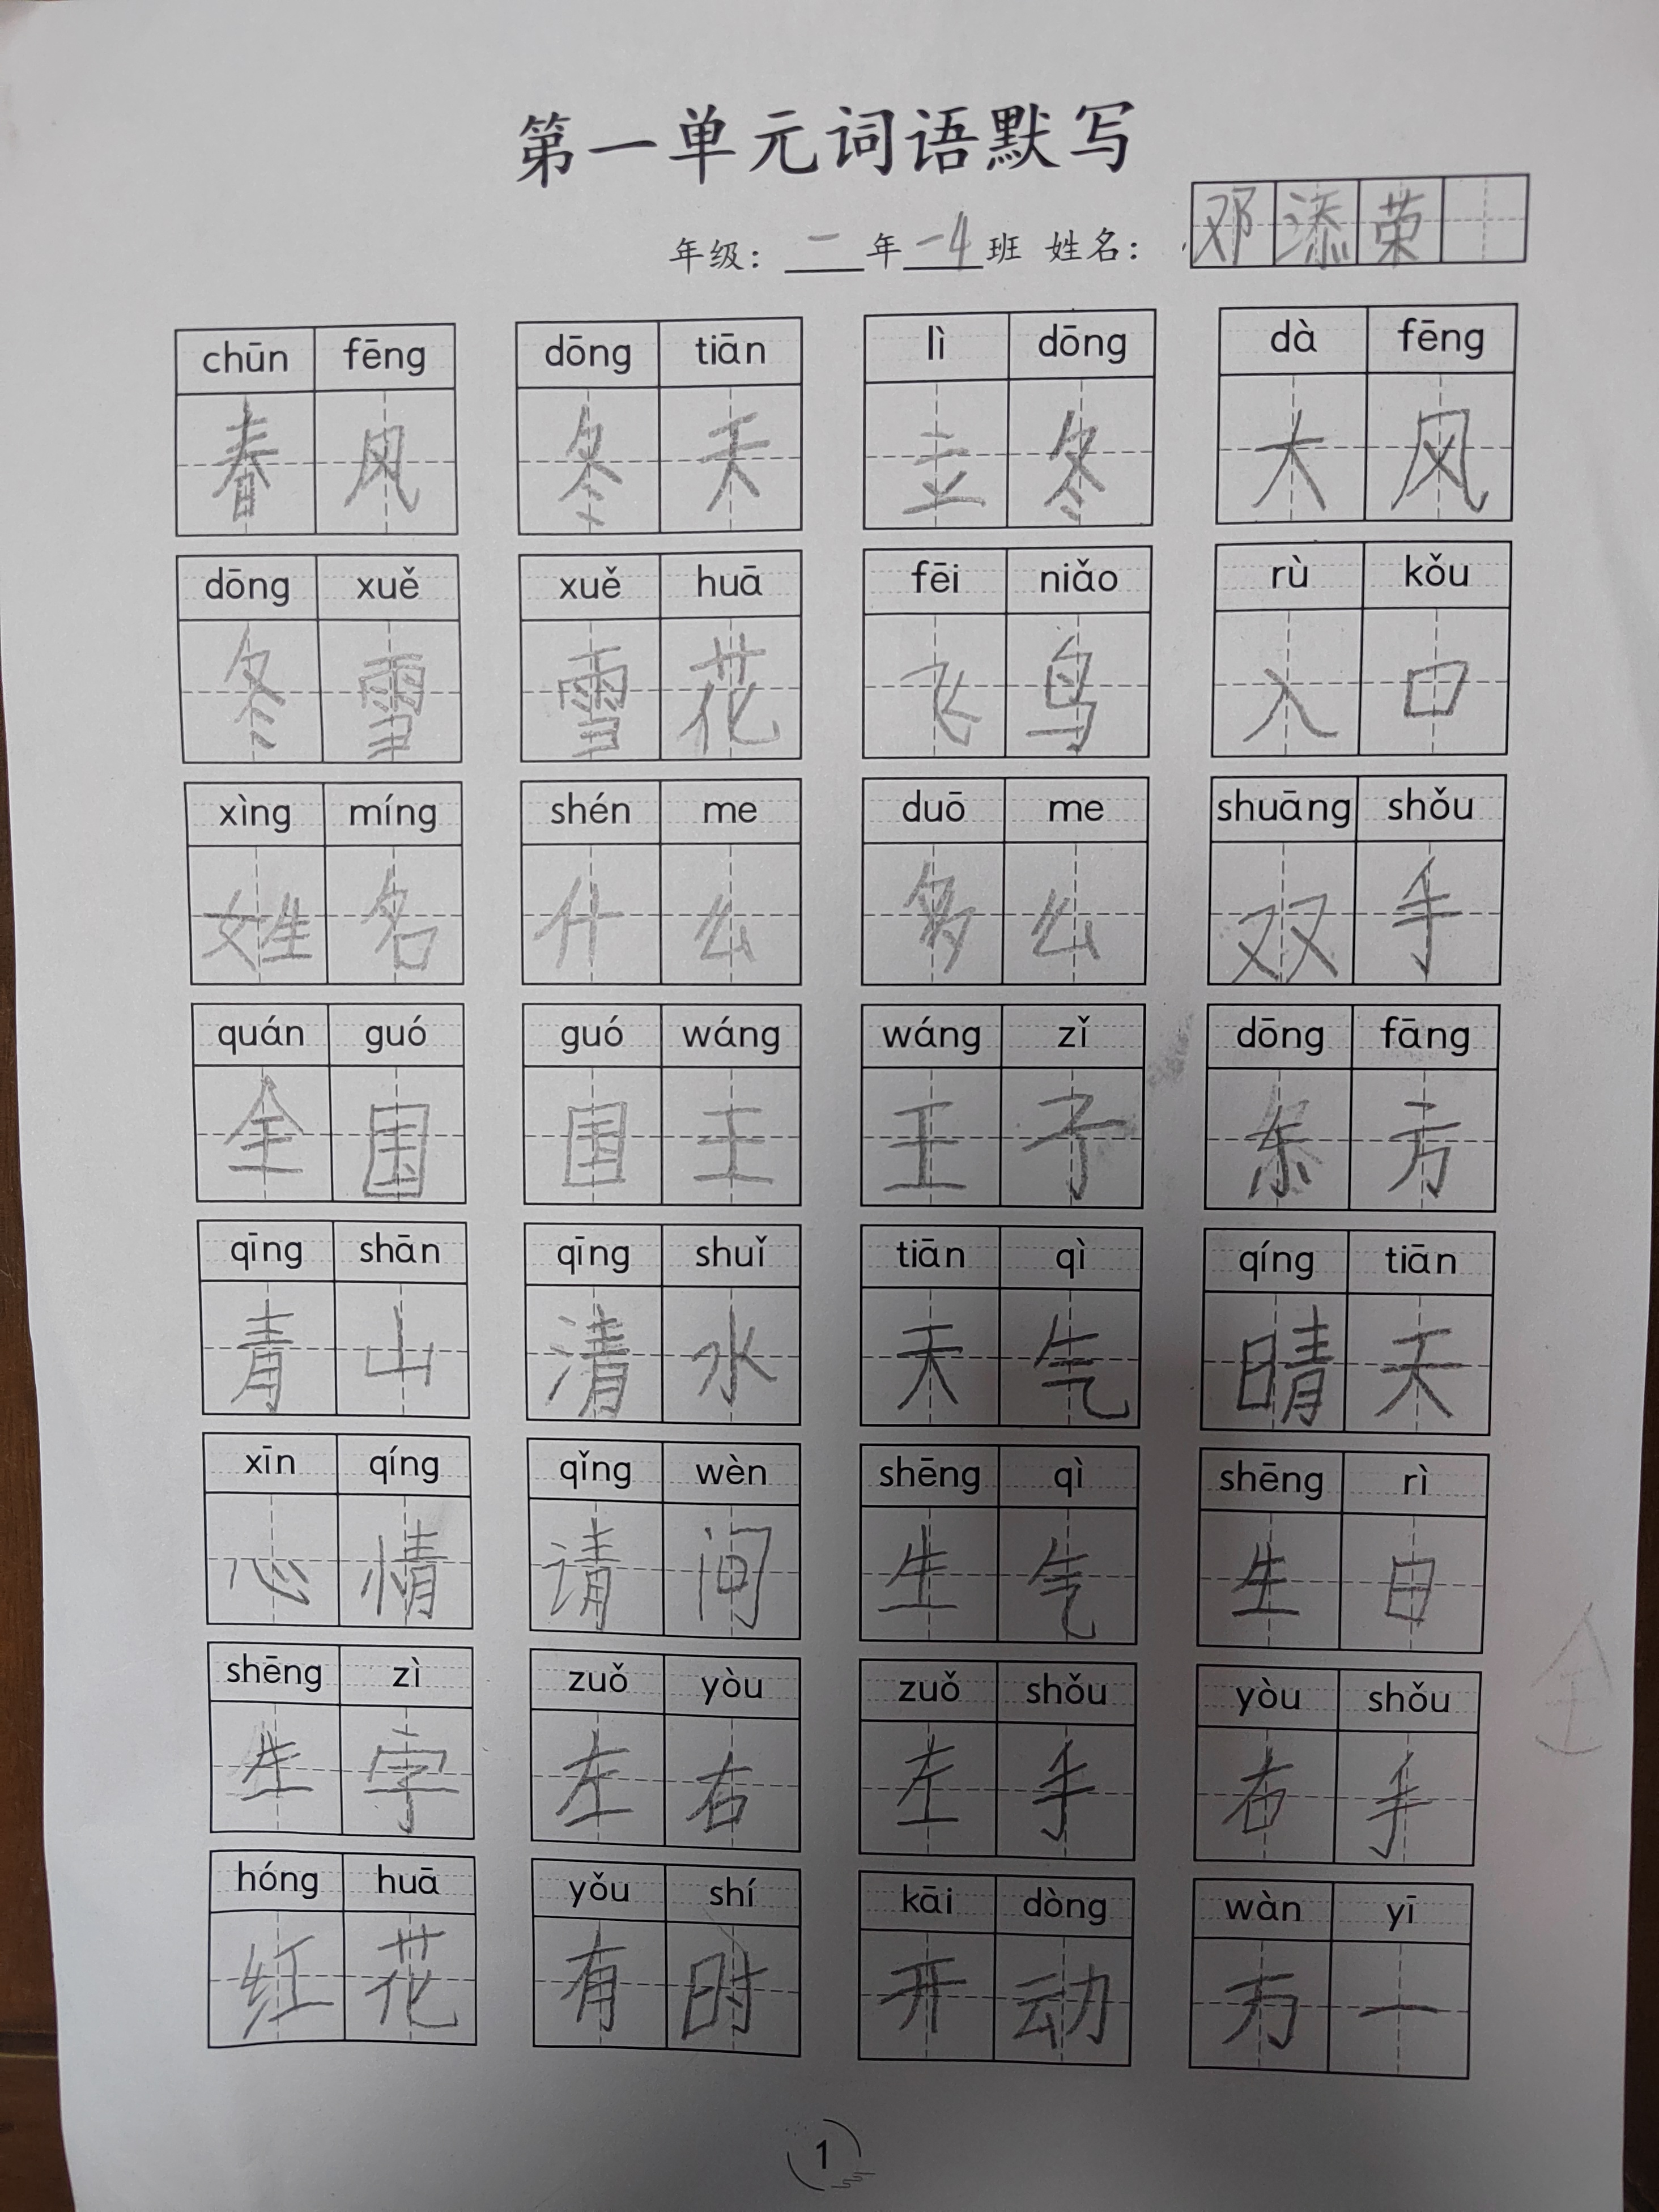 第一单元词语默写
年级：一年一4班 姓名：邓添荣
chūn fēng dōng tiān lì dōng dà fēng
春风 冬天 立冬 大风
dōng xuě xuě huā fēi niǎo rù kǒu
冬雪 雪花 飞鸟 入口
xìng míng shén me duō me shuāng shǒu
姓名 什么 多么 双手
quán guó guó wáng wáng zǐ dōng fāng
全国 国王 王子 东方
qīng shān qīng shuǐ tiān qì qíng tiān
青山 清水 天气 晴天
xīn qíng qǐng wèn shēng qì shēng rì
心情 请问 生气 生日
全
shēng zì zuǒ yòu zuǒ shǒu yòu shǒu
生字 左右 左手 右手
hóng huā yǒu shí kāi dòng wàn yī
红花 有时 开动 万一
1